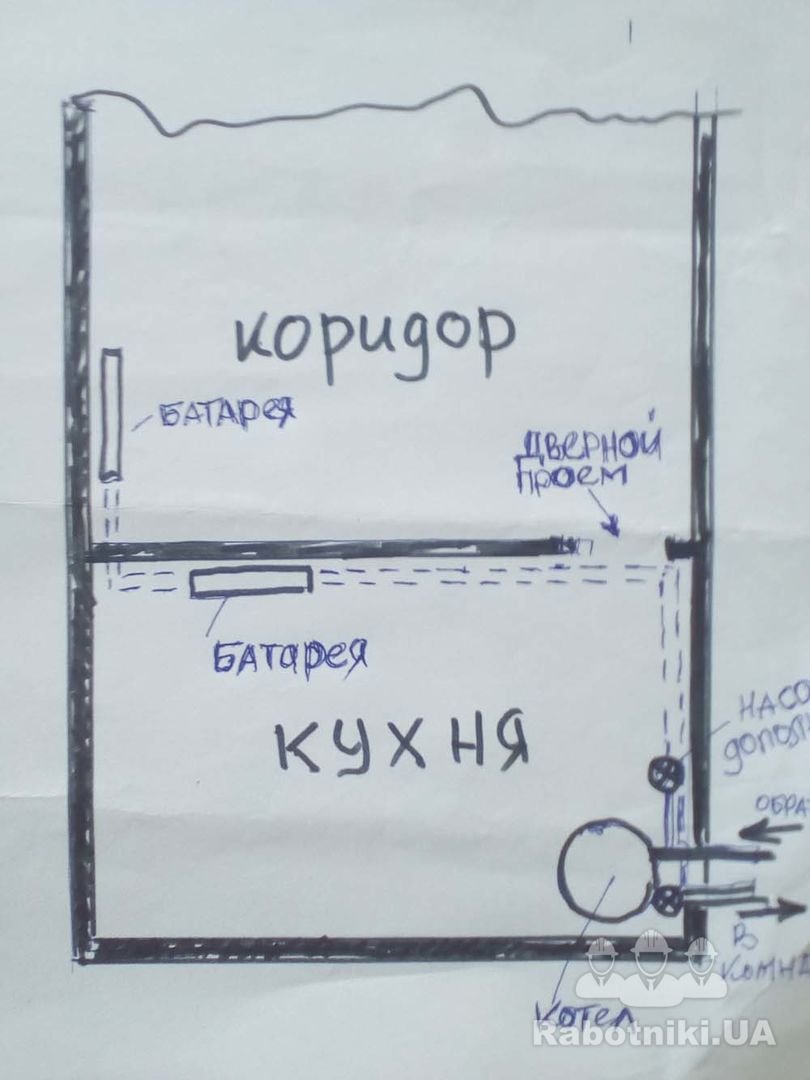 коридор
БАТАРЕЯ
ДВЕРНОЙ
ПРОЕМ
БАТАРЕЯ
КУХНЯ
НАСО
ДОПОЛ
ОБРА
В
КОМНА
КОТЕЛ
Rabotniki.UA